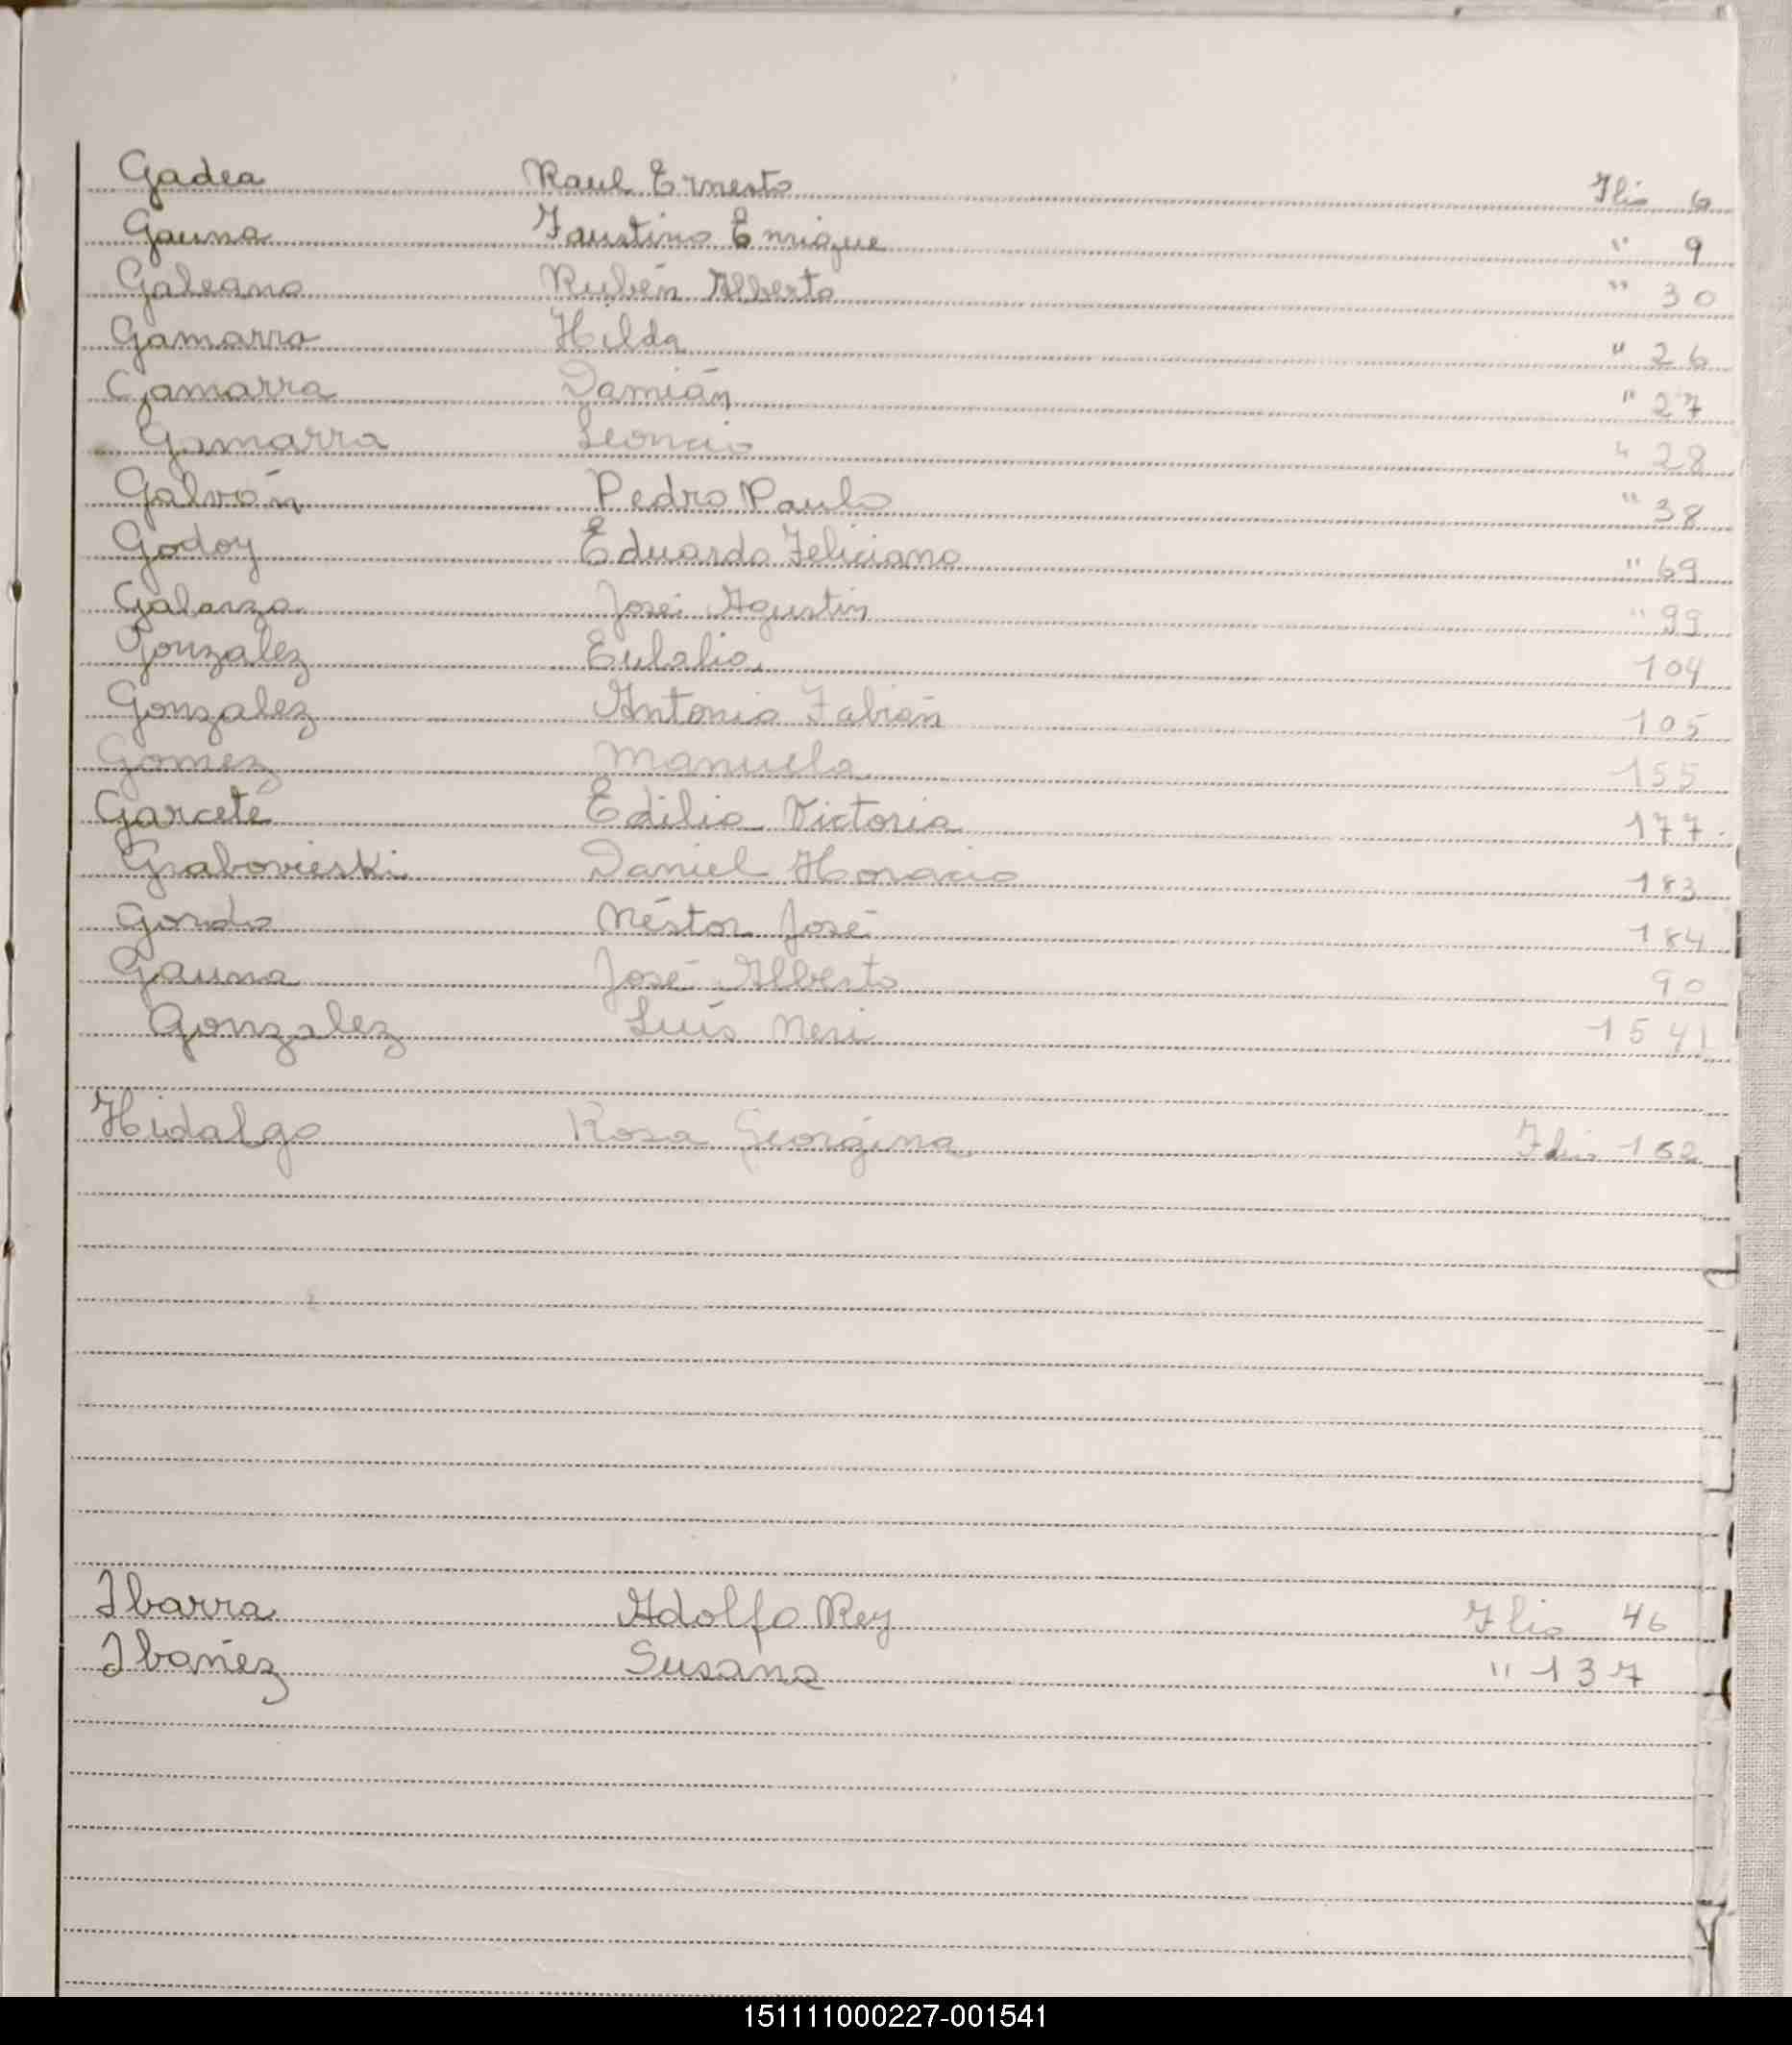 Gadea Raul Ernesto Flio 6
Gauna Faustino Enrique " 9
Galeano Rubén Alberto " 30
Gamarra Hilda " 26
Gamarra Damián " 27
Gamarra Leoncio " 28
Galván Pedro Paulo " 38
Godoy Eduardo Feliciano " 69
Galarza José Agustin " 99
Gonzalez Eulalia 104
Gonzalez Antonio Fabián 105
Gomez Manuela 155
Garcete Edilia Victoria 177.
Grabovieski Daniel Horacio 183
Gordo Néstor José 184
Gauna José Alberto 90
Gonzalez Luis Neri
Hidalgo Rosa Georgina Flio 162
Ibarra Adolfo Rey Flio 46
Ibañez Susana " 137
151111000227-001541